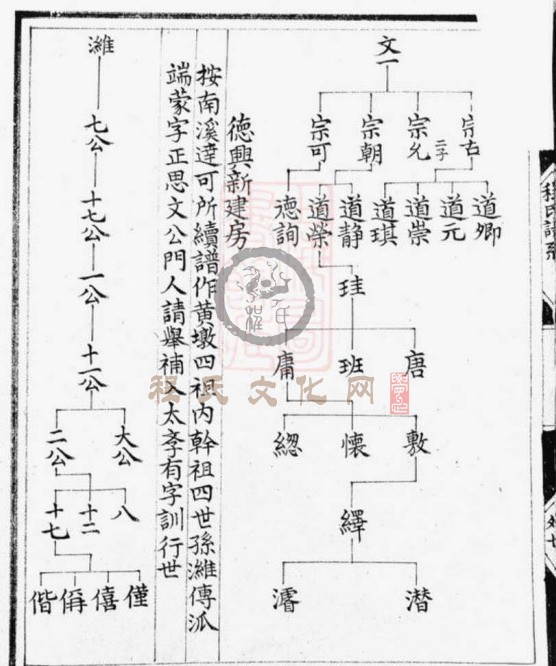 文一
宗右 二子
宗允
宗朝
宗可
道卿
道元
道崇
道琪
道静
道榮
德詢
珪
唐
班
庸
敷
懷
緫
繹
潜
濬
德興新建房
按南溪達可所續譜作黄墩四祖内幹祖四世孫濰傳派
端蒙字正思文公門人請舉補入太孝有字訓行世
濰
七公
十七公
一公
十一公
大公
二公
八
十二
十七
僅
僖
偁
偕
程氏文化网